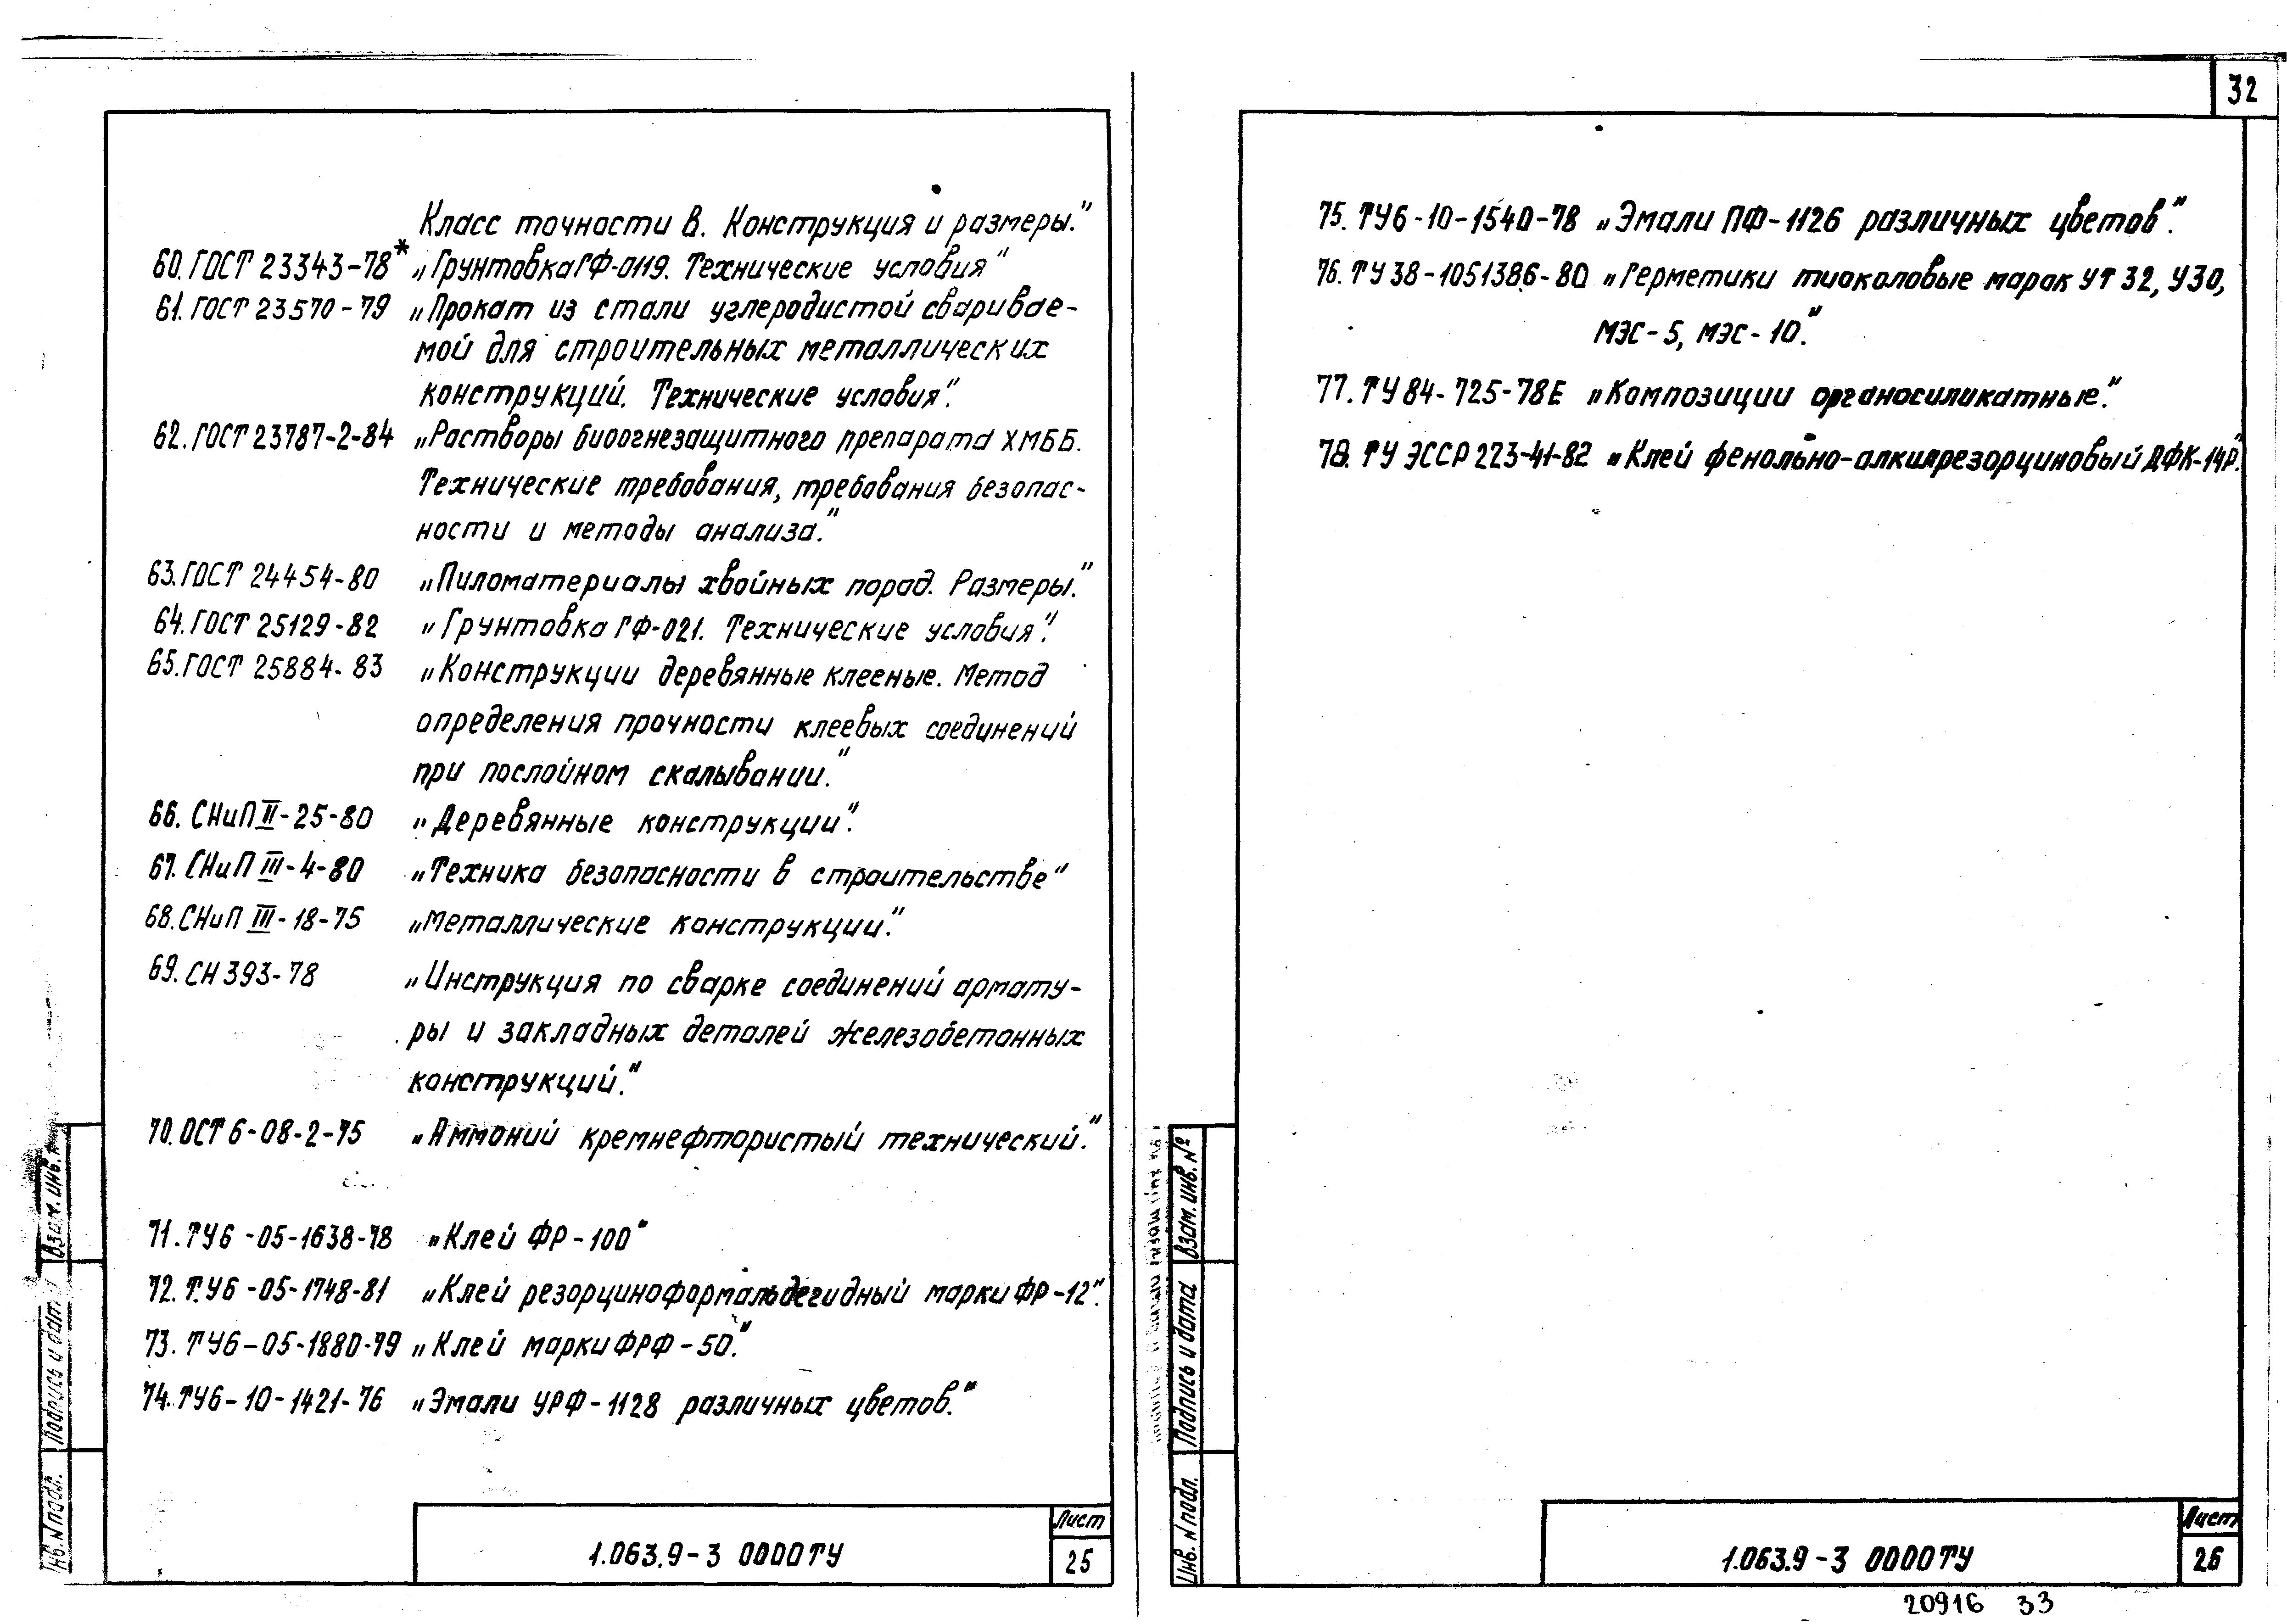 Класс точности В. Конструкция и размеры."
60. ГОСТ 23343-78* „Грунтовка ГФ-0119. Технические условия"
61. ГОСТ 23570-79 „Прокат из стали углеродистой сваривае-
мой для строительных металлических
конструкций. Технические условия".
62. ГОСТ 23787-2-84 „Растворы биоогнезащитного препарата ХМББ.
Технические требования, требования безопас-
ности и методы анализа."
63. ГОСТ 24454-80 „Пиломатериалы хвойных пород. Размеры."
64. ГОСТ 25129-82 „Грунтовка ГФ-021. Технические условия".
65. ГОСТ 25884-83 „Конструкции деревянные клееные. Метод
определения прочности клеевых соединений
при послойном скалывании."
66. СНиП II-25-80 „Деревянные конструкции".
67. СНиП III-4-80 „Техника безопасности в строительстве"
68. СНиП III-18-75 „Металлические конструкции."
69. СН 393-78 „Инструкция по сварке соединений армату-
ры и закладных деталей железобетонных
конструкций."
70. ОСТ 6-08-2-75 „Аммоний кремнефтористый технический."
71. ТУ6-05-1638-78 „Клей ФР-100"
72. ТУ6-05-1748-81 „Клей резорциноформальдегидный марки ФР-12".
73. ТУ6-05-1880-79 „Клей марки ФРФ-50."
74. ТУ6-10-1421-76 „Эмали УРФ-1128 различных цветов."
Взам. инв. №
Подпись и дата
Инв. N подл.
1.063.9-3 0000ТУ
Лист
25
32
75. ТУ6-10-1540-78 „Эмали ПФ-1126 различных цветов".
76. ТУ38-1051386-80 „Герметики тиоколовые марок УТ 32, У30,
МЭС-5, МЭС-10."
77. ТУ 84-725-78Е „Композиции органосиликатные."
78. ТУ ЭССР 223-41-82 „Клей фенольно-алкилрезорциновый ДФК-14Р."
Взам. инв. №
Подпись и дата
Инв. N подл.
1.063.9-3 0000ТУ
Лист
26
20916 33